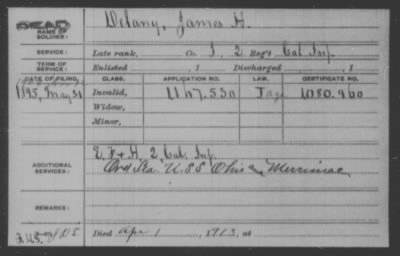 DEAD
NAME OF SOLDIER: Delany, James H.
SERVICE: Late rank, Co I, 2 Reg't Cal Inf.
TERM OF SERVICE: Enlisted , 1 Discharged , 1
DATE OF FILING. CLASS. APPLICATION NO. LAW. CERTIFICATE NO.
1895, May 31 Invalid, 1167.530 1080.960
Widow,
Minor,
ADDITIONAL SERVICES: E, F & H, 2 Cal. Inf.
Ord Sea. U.S.S. Ohio and Merrimac
REMARKS:
Died Apr 1 , 1913, at